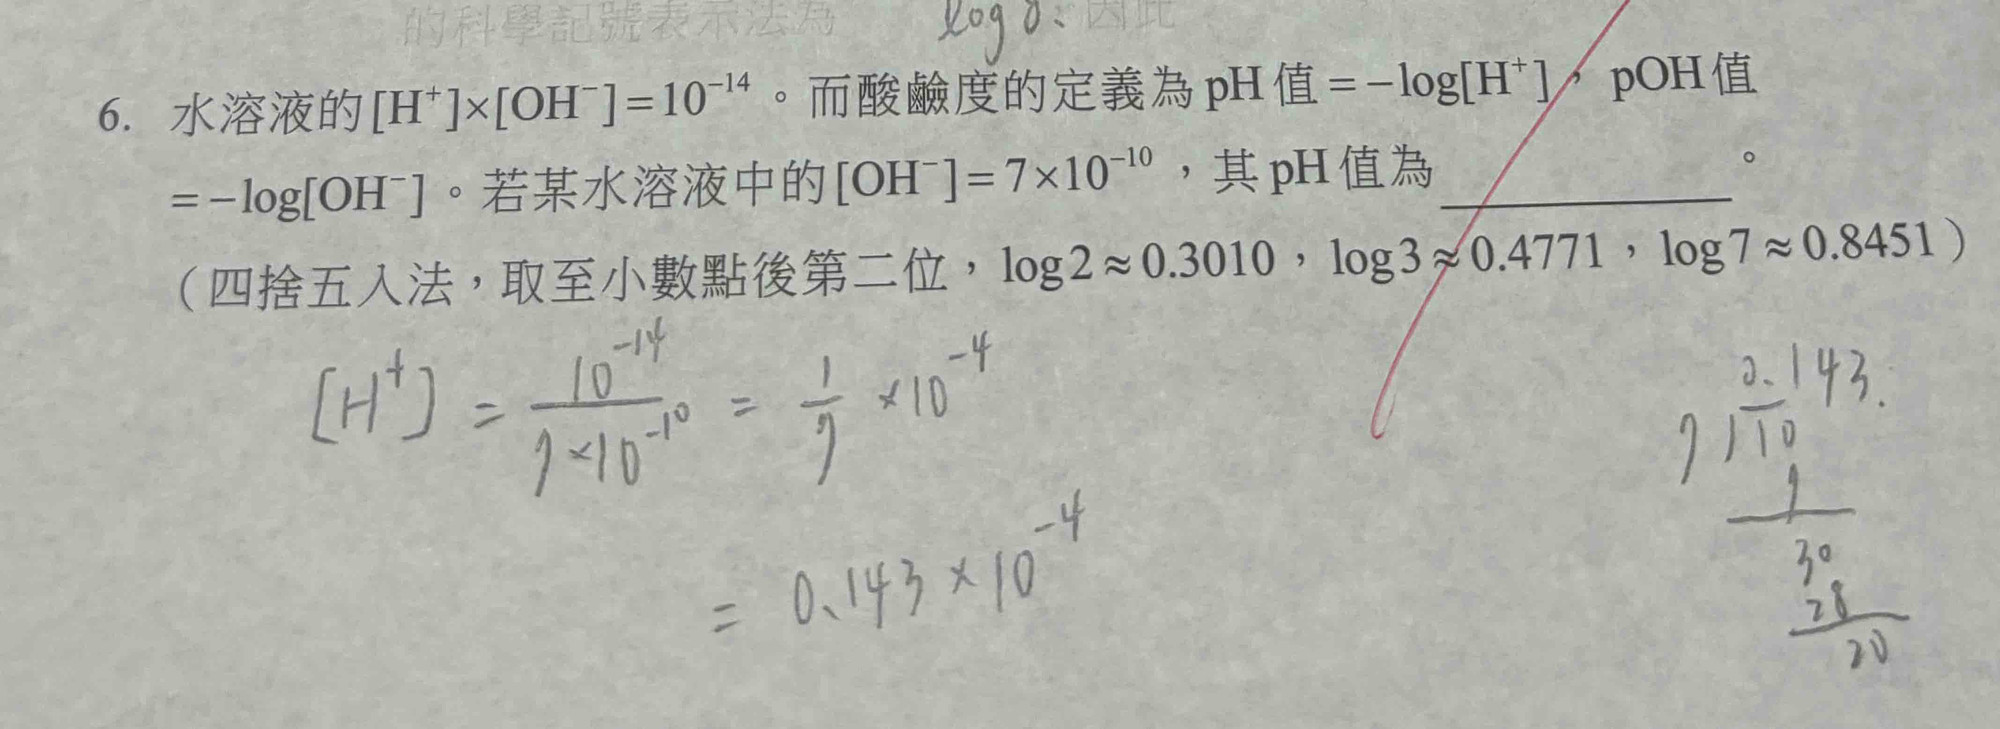 的科學記號表示法為 log 8、因此
6. 水溶液的[H⁺]×[OH⁻]=10⁻¹⁴。而酸鹼度的定義為 pH 值 = −log[H⁺]，pOH 值
= −log[OH⁻]。若某水溶液中的[OH⁻]= 7×10⁻¹⁰，其 pH 值為__________。
（四捨五入法，取至小數點後第二位，log 2 ≈ 0.3010，log 3 ≈ 0.4771，log 7 ≈ 0.8451）
[H⁺] = 10⁻¹⁴ / 7×10⁻¹⁰ = 1/7 ×10⁻⁴
= 0.143 × 10⁻⁴
0.143.
7 ) 10
7
30
28
20